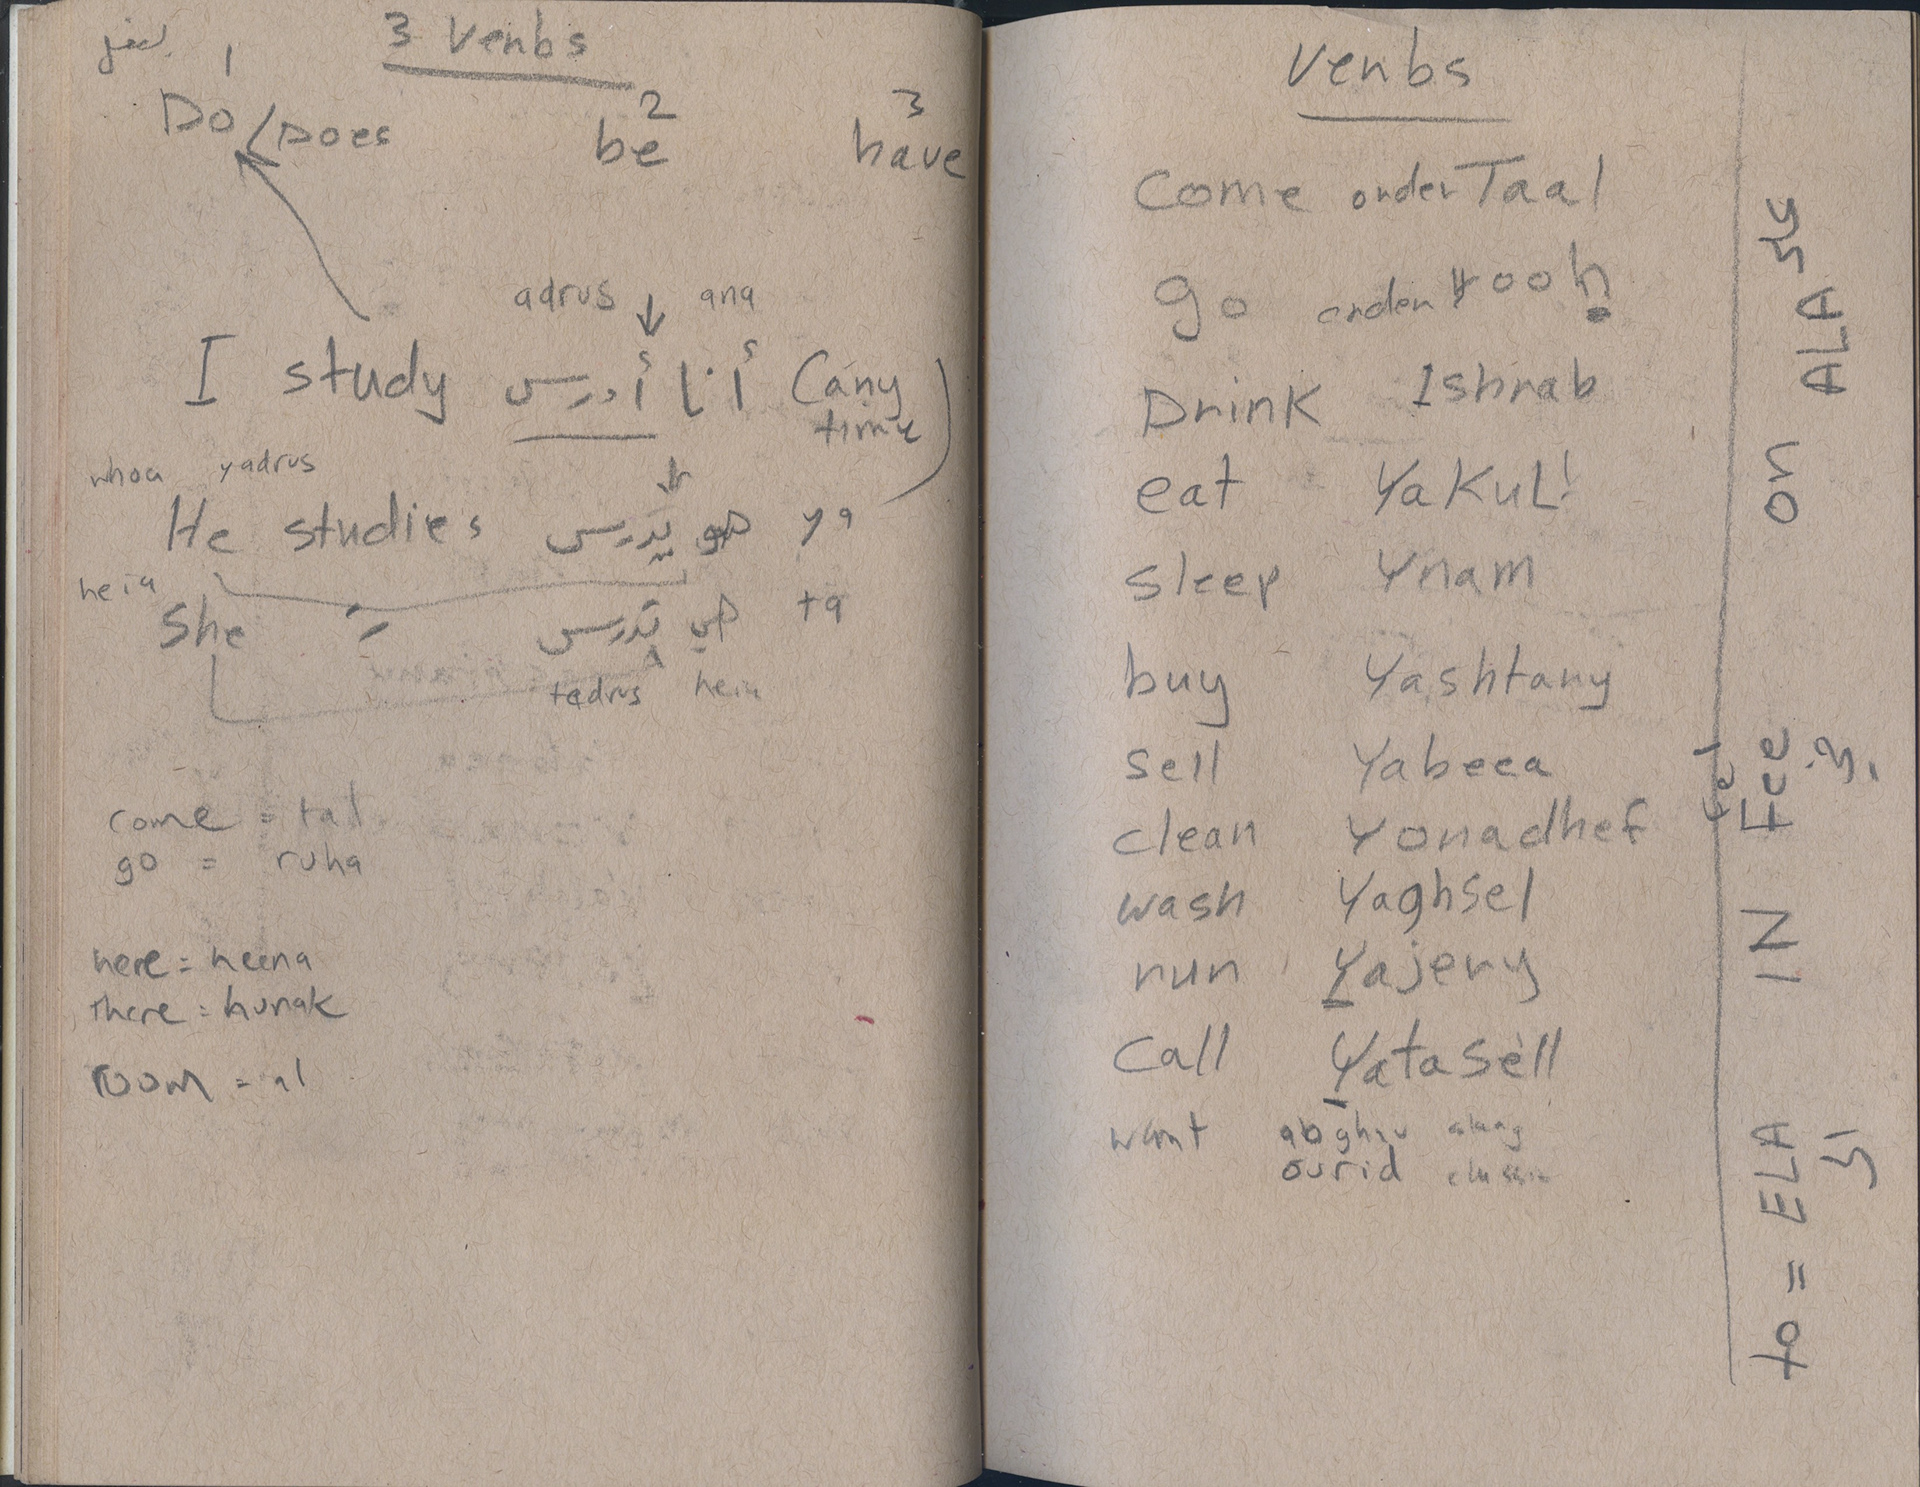 3 Verbs
1 2 3
Do/Does be have
adrus ↓ ana
I study أنا أدرس (any
time)
whoa yadrus
He studies هو يدرس ya
heia
She هي تدرس ta
tadrus heia
come = tal
go = ruha
here = heena
there = hunak
room = al
Verbs
Come order Taal
go order rooh
Drink Ishrab
eat YaKuL!
sleep Ynam
buy Yashtary
sell Yabeea
clean Yonadhef
wash Yaghsel
run Yajery
Call Yatasell
want slang
ourid classic
to = ELA IN Fee on ALA على
إلى في